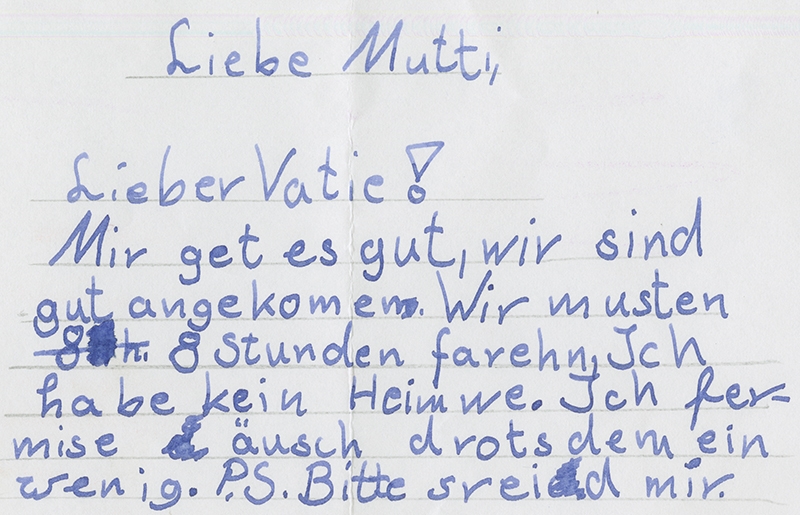 Liebe Mutti,
Lieber Vatie!
Mir get es gut, wir sind
gut angekomen. Wir musten
8 h. 8 Stunden farehn, Ich
habe kein Heimwe. Ich fer-
mise äusch drotsdem ein
wenig. P.S. Bitte sreid mir.